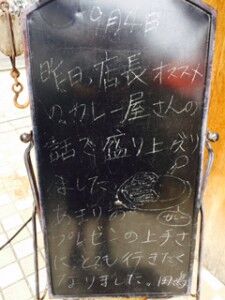 9月4日
昨日、店長オススメ
のカレー屋さんの
話で盛り上がり
ました。
あまりの
プレゼンの上手さ
にとても行きたく
なりました。